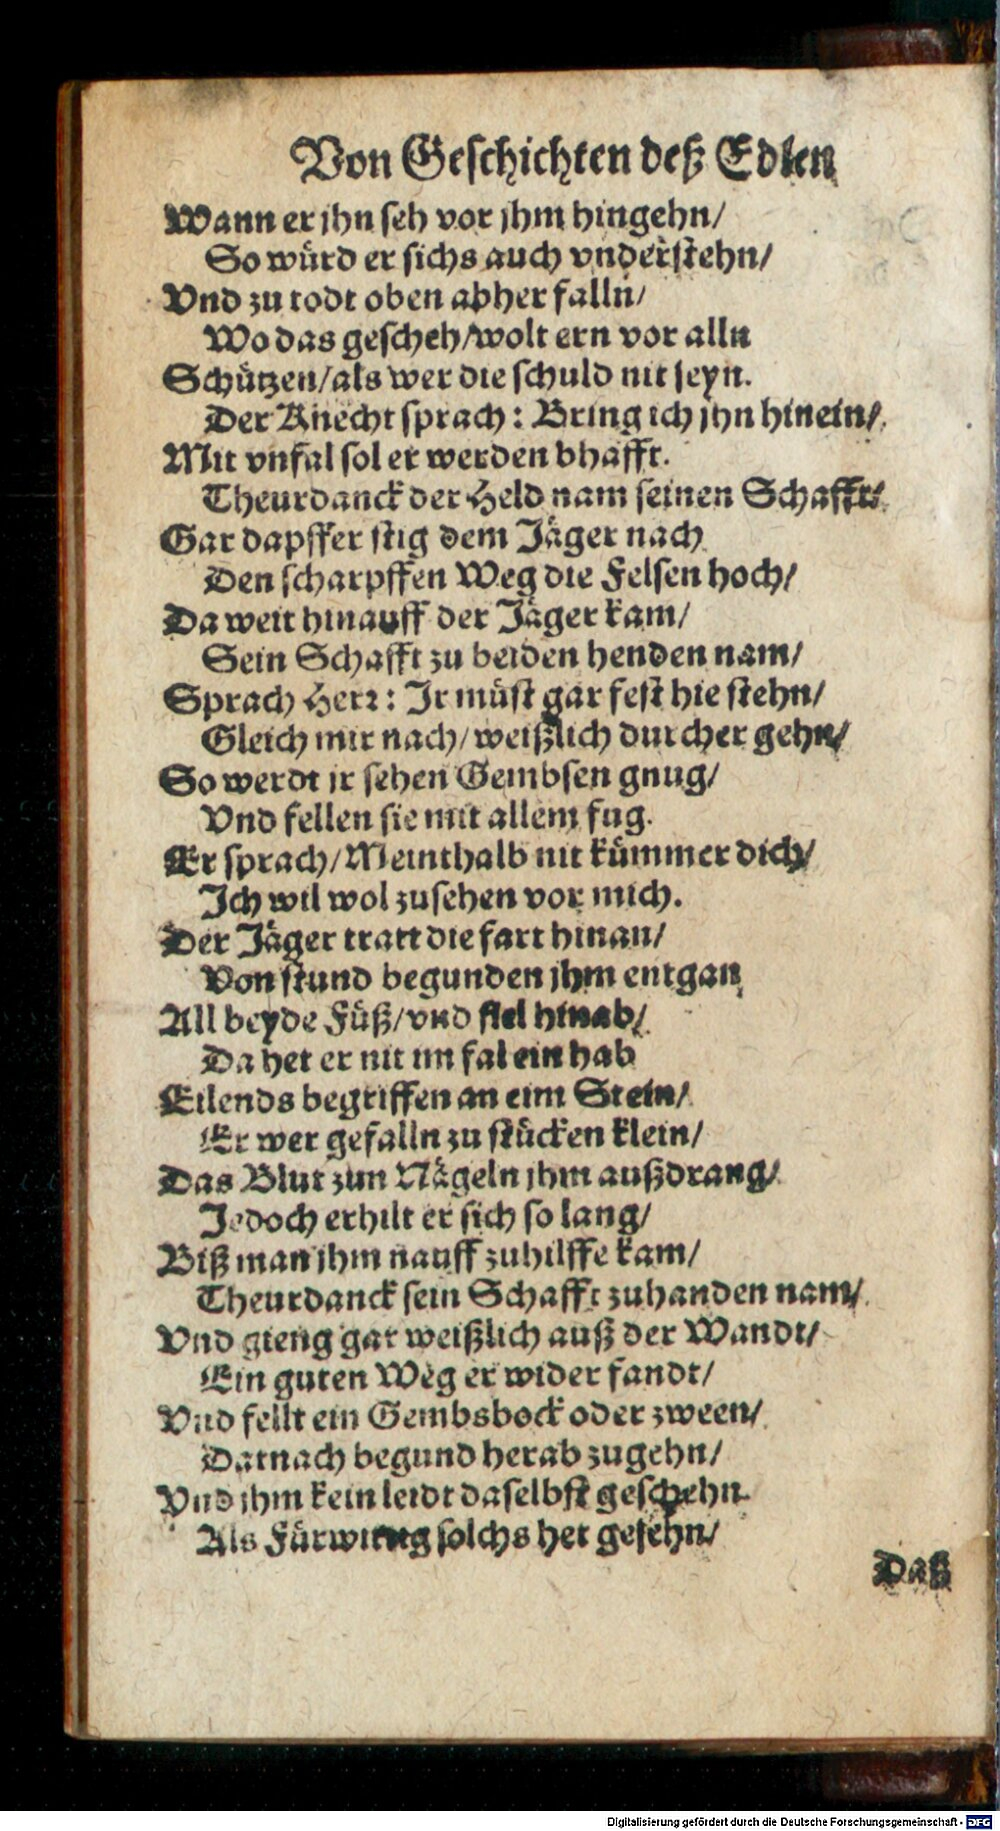 Von Geschichten deß Edlen
Wann er jhn seh vor jhm hingehn/
So würd er sichs auch vnderstehn/
Vnd zu todt oben abher falln/
Wo das gescheh/wolt ern vor alln
Schützen/als wer die schuld nit seyn.
Der Knecht sprach: Bring ich jhn hinein/
Mit vnfal sol er werden bhafft.
Theurdanck der Held nam seinen Schafft/
Gar dapffer stig dem Jäger nach
Den scharpffen Weg die Felsen hoch/
Da weit hinauff der Jäger kam/
Sein Schafft zu beiden henden nam/
Sprach Herr: Ir müst gar fest hie stehn/
Gleich mir nach/weißlich durcher gehn/
So werdt ir sehen Gembsen gnug/
Vnd fellen sie mit allem fug.
Er sprach/Meinthalb nit kümmer dich/
Ich wil wol zusehen vor mich.
Der Jäger tratt die fart hinan/
Von stund begunden jhm entgan
All beyde Füß/vnd fiel hinab/
Da het er nit im fal ein hab
Eilends begriffen an eim Stein/
Er wer gefalln zu stücken klein/
Das Blut zun Nägeln jhm außdrang/
Jedoch erhilt er sich so lang/
Biß man jhm nauff zuhilffe kam/
Theurdanck sein Schafft zuhanden nam/
Vnd gieng gar weißlich auß der Wandt/
Ein guten Weg er wider fandt/
Vnd fellt ein Gembsbock oder zween/
Darnach begund herab zugehn/
Vnd jhm kein leidt daselbst geschehn
Als Fürwittig solchs het gesehn/
Daß
Digitalisierung gefördert durch die Deutsche Forschungsgemeinschaft - DFG